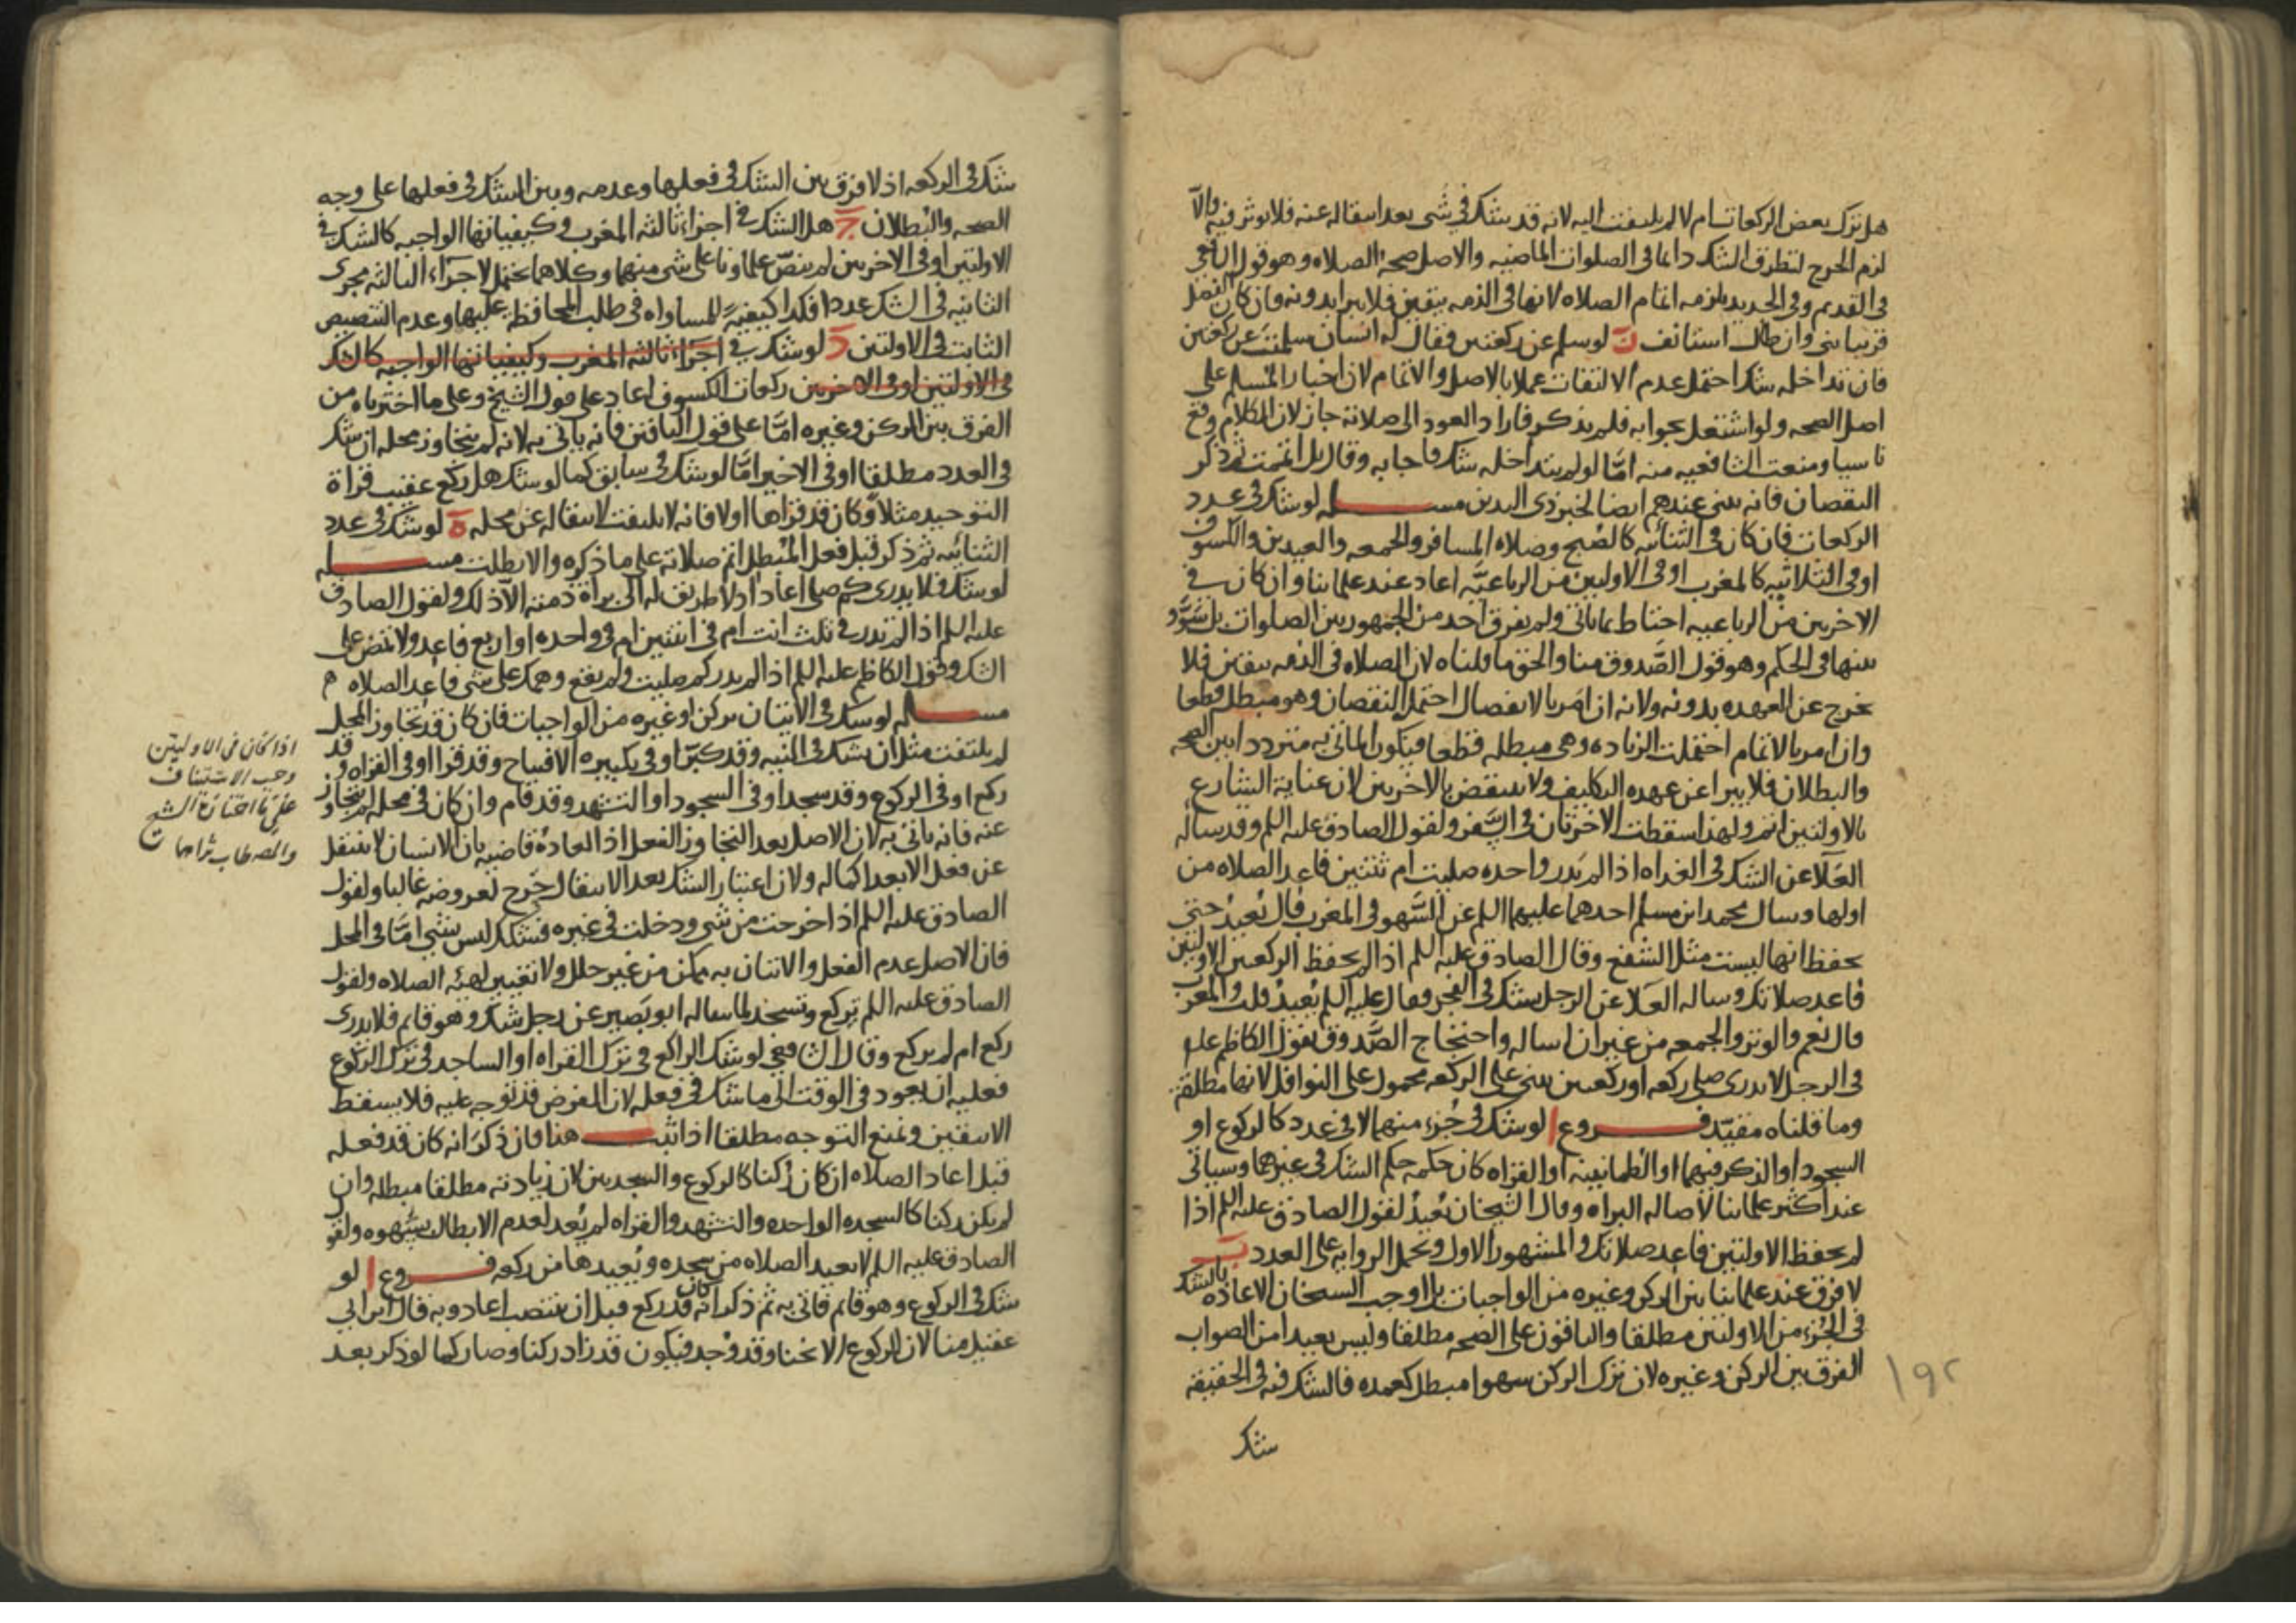 هل ترك بعض الركعات ام لا لم يلتفت اليه لانه قد يشك في شى بعد انتقاله عنه فلا يوثر فيه والا
لزم الحرج لتطرق الشك دائما فى الصلوات الماضيه والاصل صحه الصلاه وهو قول الشافعى
فى القديم وفى الجديد يلزمه اتمام الصلاه لانها فى الذمه بيقين فلا يبرا بدونه فان كان الفصل
قريبا بنى وان طال استانف ن لو سلم عن ركعتين فقال له انسان سلمت عن ركعتين
فان تداخله شك احتمل عدم الالتفات عملا بالاصل والاتمام لان اخبار المسلم على
اصل الصحه ولو اشتغل بجوابه فلم يذكر فاراد العود الى صلاته جاز لان الكلام وقع
ناسيا ومنعت الشافعيه منه اما لو لم يتداخله شك فاجابه وقال بل اتممت ثم ذكر
النقصان فانه يبنى عندهم ايضا لخبر ذى اليدين مسله لو شك فى عدد
الركعات فان كان فى الثنائيه كالصبح وصلاه المسافر والجمعه والعيدين والكسوف
او فى الثلاثيه كالمغرب او فى الاوليين من الرباعيه اعاد عند علمائنا وان كان فى
الاخريين من الرباعيه احتاط بما ياتى ولم يفرق احد من الجمهور بين الصلوات بل سوو
بينها فى الحكم وهو قول الصدوق منا والحق ما قلناه لان الصلاه فى الذمه بيقين فلا
يخرج عن العهده بدونه ولانه ان امر بالانفصال احتمل النقصان وهو مبطل قطعا
وان امر بالاتمام احتملت الزياده وهى مبطله قطعا فيكون الماتى به مترددا بين الصحه
والبطلان فلا يبرا عن عهده التكليف ولا ينتقض بالاخريين لان عناية الشارع
بالاولتين اتم ولهذا اسقطت الاخرتان فى السفر ولقول الصادق عليه اللم وقد ساله
العلا عن الشك فى الغداه اذا لم تدر واحده صليت ام ثنتين فاعد الصلاه من
اولها وسال محمد ابن مسلم احدهما عليهما اللم عن السهو فى المغرب قال يعيد حتى
يحفظ انها ليست مثل الشفع وقال الصادق عليه اللم اذا لم يحفظ الركعتين الاولتين
فاعد صلاتك وساله العلا عن الرجل يشك فى الفجر فقال عليه اللم يعيد قلت والمغرب
قال نعم والوتر والجمعه من غير ان اساله واحتجاج الصدوق بقول الكاظم عليه
فى الرجل لا يدرى صلى ركعه او ركعتين يبنى على الركعه محمول على النوافل لانها مطلقة
وما قلناه مقيد فروع ا لو شك فى جزء منهما لا فى عدد كالركوع او
السجود او الذكر فيهما او الطمانينه او القراه كان حكمه حكم الشك فى غيرهما وسياتى
عند اكثر علمائنا لاصاله البراه وقال الشيخان يعيد لقول الصادق عليه اللم اذا
لم تحفظ الاولتين فاعد صلاتك والمشهور الاول وتحمل الروايه على العدد ب
لا فرق عند علمائنا بين الركن وغيره من الواجبات بل اوجب الشيخان الاعاده بالشك
فى الجزء من الاولتين مطلقا والباقون على الصحه مطلقا وليس بعيدا من الصواب
الفرق بين الركن وغيره لان ترك الركن سهوا مبطل كعمده فالشك فيه فى الحقيقه
شك
١٩٢
شك فى الركعه اذ لا فرق بين الشك فى فعلها وعدمه وبين الشك فى فعلها على وجه
الصحه والبطلان ج هل الشك فى اجزاء ثالثه المغرب وكيفياتها الواجبه كالشك فى
الاولتين او فى الاخريين لم ينص علماونا على شى منهما وكلاهما محتمل لاجراء الثالثه مجرى
الثانيه فى الشك عددا فكذا كيفية للمساواه فى طلب المحافظه عليها وعدم التنصيص
الثابت فى الاولتين د لو شك فى اجزاء ثالثه المغرب وكيفياتها الواجبه كالشك
فى الاولتين او فى الاخريين ركعات الكسوف اعاد على قول الشيخ وعلى ما اخترناه من
الفرق بين الركن وغيره اما على قول الباقين فانه ياتى به لانه لم يتجاوز محله ان شك
فى العدد مطلقا او فى الاخير اما لو شك فى سابق كما لو شك هل ركع عقيب قراة
التوحيد مثلا وكان قد قراها اولا فانه لا يلتفت لانتقاله عن محله ه لو شك فى عدد
الثنائيه ثم ذكر قبل فعل المبطل اتم صلاته على ما ذكره والا بطلت مسله
لو شك فلا يدرى كم صلى اعاد اذ لا طريق له الى براة ذمته الا ذلك ولقول الصادق
عليه اللم اذا لم تدر فى ثلث انت ام فى اثنتين ام فى واحده او اربع فاعد ولا تمض على
الشك وقول الكاظم عليه اللم اذا لم يدر كم صليت ولم يقع وهمك على شى فاعد الصلاه م
مسله لو شك فى الاتيان بركن او غيره من الواجبات فان كان قد تجاوز المحل
لم يلتفت مثل ان يشك فى النيه وقد كبر او فى تكبيره الافتتاح وقد قرا او فى القراه وقد
ركع او فى الركوع وقد سجد او فى السجود او التشهد وقد قام وان كان فى محله لم يتجاوز
عنه فانه ياتى به لان الاصل بعد التجاوز الفعل اذ العاده قاضيه بان الانسان لا ينتقل
عن فعل الا بعد اكماله ولان اعتبار الشك بعد الانتقال حرج لعروضه غالبا ولقول
الصادق عليه اللم اذا خرجت من شى ودخلت فى غيره فشكك ليس بشى اما فى المحل
فان الاصل عدم الفعل والاتيان به يمكن من غير خلل ولا تغيير لهيئه الصلاه ولقول
الصادق عليه اللم يركع ويسجد لما ساله ابو بصير عن رجل شك وهو قائم فلا يدرى
ركع ام لم يركع وقال الشافعي لو شك الراكع فى ترك القراه او الساجد فى ترك الركوع
فعليه ان يعود فى الوقت الى ما شك فى فعله لان الفرض قد توجه عليه فلا يسقط
الا بيقين ونمنع التوجه مطلقا اذا ثبت هذا فان ذكر انه كان قد فعله
قبل اعاد الصلاه ان كان ركنا كالركوع والسجدتين لان زيادته مطلقا مبطله وان
لم يكن ركنا كالسجده الواحده والتشهد والقراه لم يعد لعدم الابطال بسهوه ولقو
الصادق عليه اللم لا يعيد الصلاه من سجده ويعيدها من ركعه فروع ا لو
شك فى الركوع وهو قائم فاتى به ثم ذكر انه كان قد ركع قبل ان ينتصب اعاد وبه قال ابن ابى
عقيل منا لان الركوع الانحناء وقد وجد فيكون قد زاد ركنا وصار كما لو ذكر بعد
اذا كان فى الاوليتين
وجب الاستيناف
على ما اختاره الشيخ